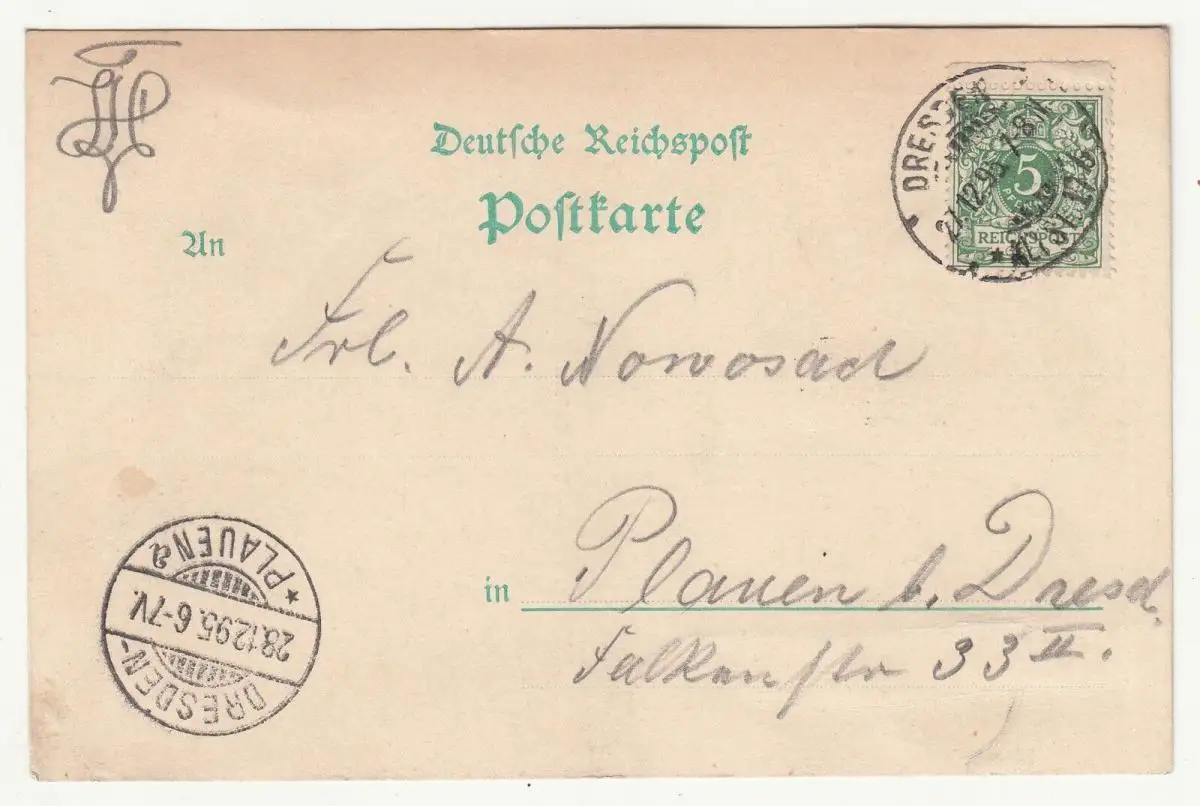 Deutsche Reichspost
Postkarte
An
DRESDEN
27.12.95 7-8 N.
5
REICHSPOST
Frl. A. Nowosad
in Plauen b. Dresd.
Falkenstr 33 II.
DRESDEN-
28.12.95. 6-7V.
* PLAUEN a